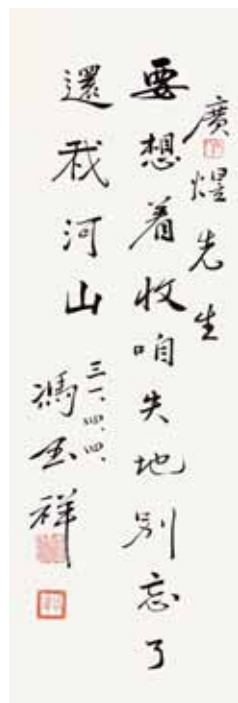 廣煋先生
要想着收咱失地別忘了
還我河山
三一、四、四、
馮玉祥